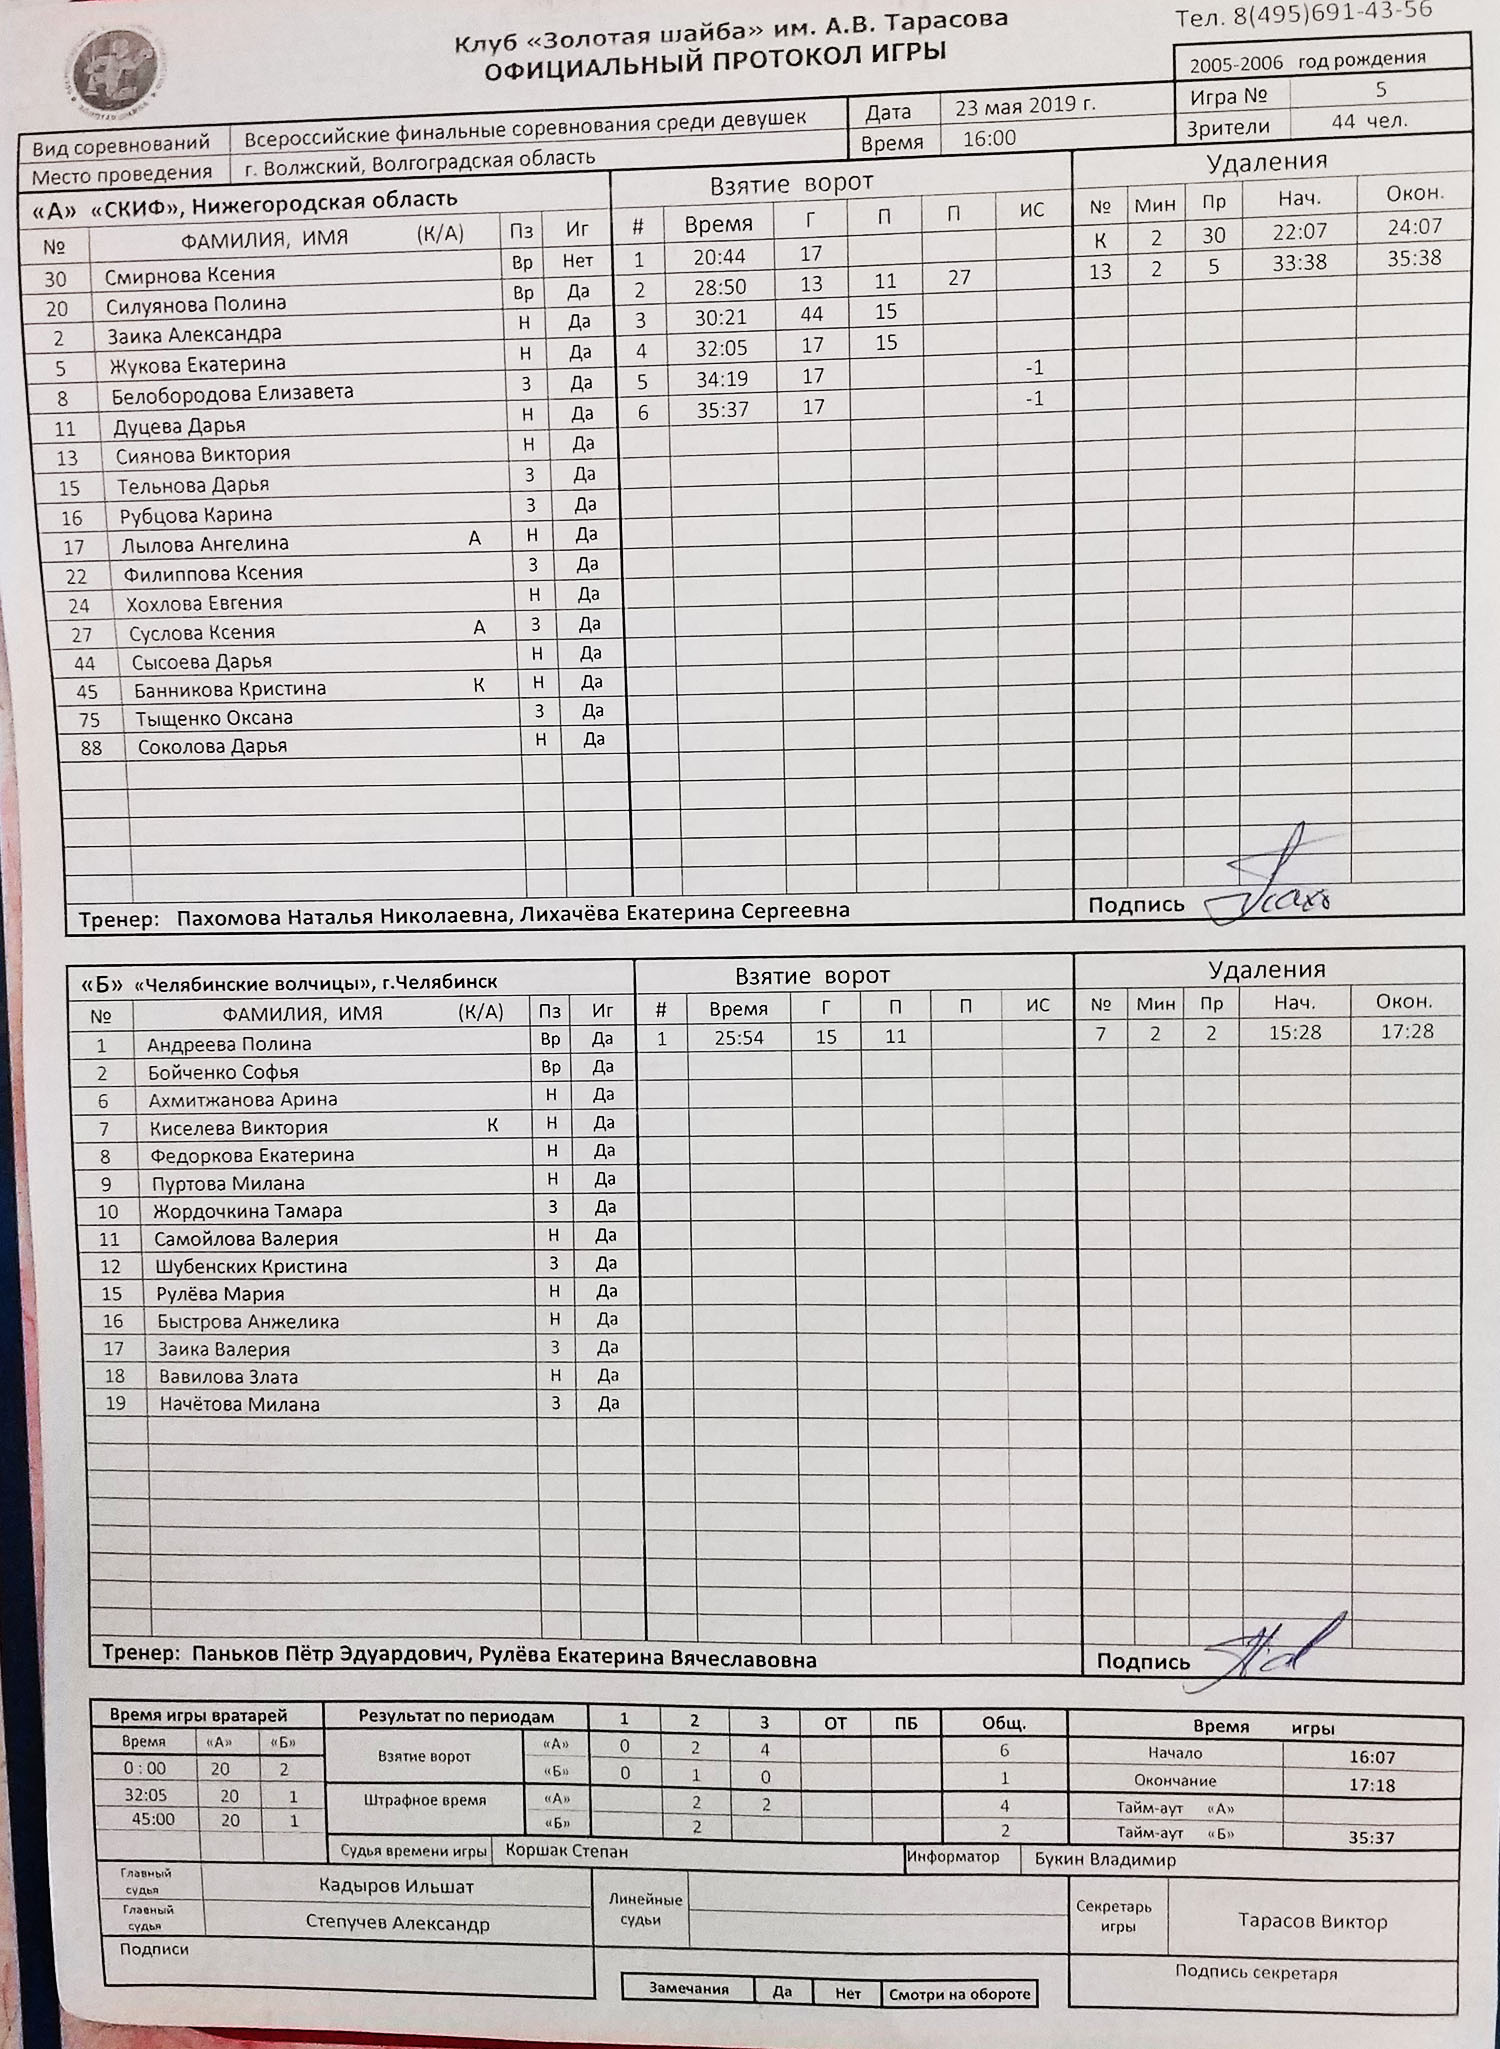 Тел. 8(495)691-43-56
Клуб «Золотая шайба» им. А.В. Тарасова
ОФИЦИАЛЬНЫЙ ПРОТОКОЛ ИГРЫ
2005-2006 год рождения
Вид соревнований Всероссийские финальные соревнования среди девушек Дата 23 мая 2019 г. Игра № 5
Место проведения г. Волжский, Волгоградская область Время 16:00 Зрители 44 чел.
«А» «СКИФ», Нижегородская область Взятие ворот Удаления
№ ФАМИЛИЯ, ИМЯ (К/А) Пз Иг # Время Г П П ИС № Мин Пр Нач. Окон.
30 Смирнова Ксения Вр Нет 1 20:44 17 К 2 30 22:07 24:07
20 Силуянова Полина Вр Да 2 28:50 13 11 27 13 2 5 33:38 35:38
2 Заика Александра Н Да 3 30:21 44 15
5 Жукова Екатерина Н Да 4 32:05 17 15
8 Белобородова Елизавета З Да 5 34:19 17 -1
11 Дуцева Дарья Н Да 6 35:37 17 -1
13 Сиянова Виктория Н Да
15 Тельнова Дарья З Да
16 Рубцова Карина З Да
17 Лылова Ангелина А Н Да
22 Филиппова Ксения З Да
24 Хохлова Евгения Н Да
27 Суслова Ксения А З Да
44 Сысоева Дарья Н Да
45 Банникова Кристина К Н Да
75 Тыщенко Оксана З Да
88 Соколова Дарья Н Да
Тренер: Пахомова Наталья Николаевна, Лихачёва Екатерина Сергеевна Подпись
«Б» «Челябинские волчицы», г.Челябинск Взятие ворот Удаления
№ ФАМИЛИЯ, ИМЯ (К/А) Пз Иг # Время Г П П ИС № Мин Пр Нач. Окон.
1 Андреева Полина Вр Да 1 25:54 15 11 7 2 2 15:28 17:28
2 Бойченко Софья Вр Да
6 Ахмитжанова Арина Н Да
7 Киселева Виктория К Н Да
8 Федоркова Екатерина Н Да
9 Пуртова Милана Н Да
10 Жордочкина Тамара З Да
11 Самойлова Валерия Н Да
12 Шубенских Кристина З Да
15 Рулёва Мария Н Да
16 Быстрова Анжелика Н Да
17 Заика Валерия З Да
18 Вавилова Злата Н Да
19 Начётова Милана З Да
Тренер: Паньков Пётр Эдуардович, Рулёва Екатерина Вячеславовна Подпись
Время игры вратарей Результат по периодам 1 2 3 ОТ ПБ Общ. Время игры
Время «А» «Б» Взятие ворот «А» 0 2 4 6 Начало 16:07
0 : 00 20 2 «Б» 0 1 0 1 Окончание 17:18
32:05 20 1 Штрафное время «А» 2 2 4 Тайм-аут «А»
45:00 20 1 «Б» 2 2 Тайм-аут «Б» 35:37
Судья времени игры Коршак Степан Информатор Букин Владимир
Главный судья Кадыров Ильшат Линейные судьи Секретарь игры Тарасов Виктор
Главный судья Степучев Александр
Подписи Подпись секретаря
Замечания Да Нет Смотри на обороте